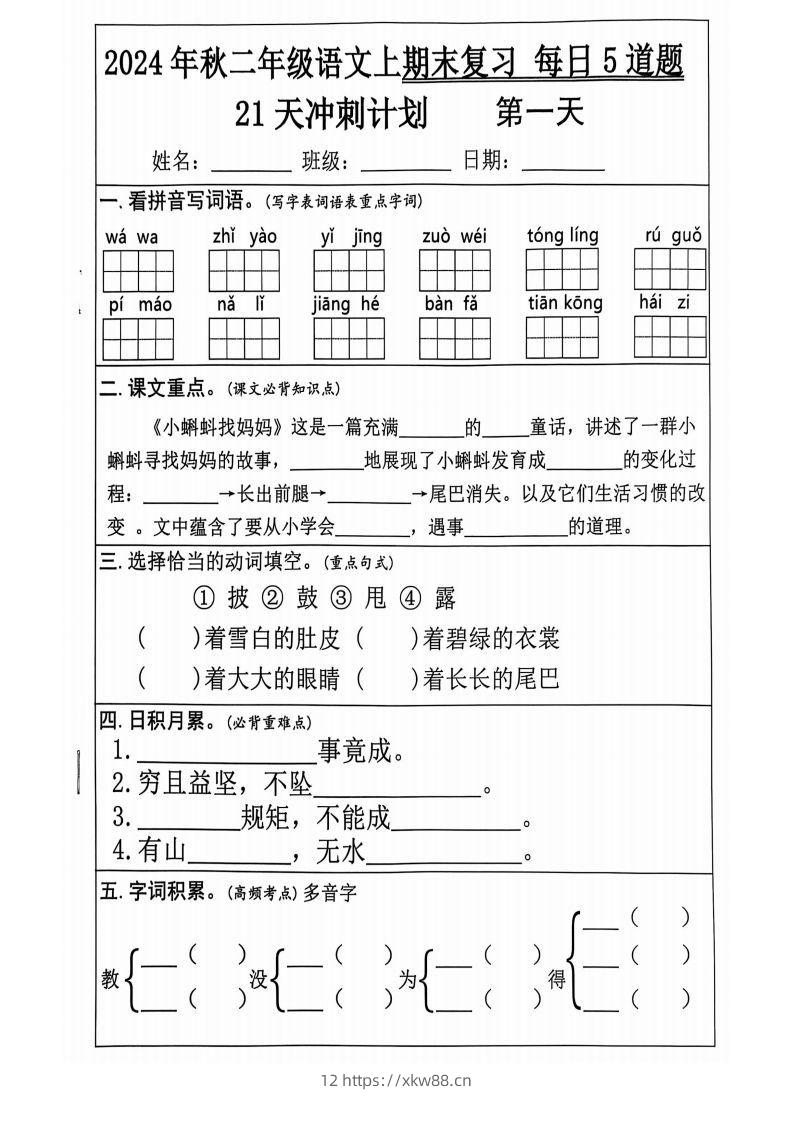 2024年秋二年级语文上期末复习 每日5道题
21天冲刺计划 第一天
姓名：________ 班级：_________ 日期：________
一.看拼音写词语。(写字表词语表重点字词)
wá wa zhǐ yào yǐ jīng zuò wéi tóng líng rú guǒ
pí máo nǎ lǐ jiāng hé bàn fǎ tiān kōng hái zi
二.课文重点。(课文必背知识点)
《小蝌蚪找妈妈》这是一篇充满_______的_____童话，讲述了一群小
蝌蚪寻找妈妈的故事，________地展现了小蝌蚪发育成________的变化过
程：________→长出前腿→_________→尾巴消失。以及它们生活习惯的改
变 。文中蕴含了要从小学会________，遇事___________的道理。
三.选择恰当的动词填空。(重点句式)
① 披 ② 鼓 ③ 甩 ④ 露
( )着雪白的肚皮 ( )着碧绿的衣裳
( )着大大的眼睛 ( )着长长的尾巴
四.日积月累。(必背重难点)
1.______________事竟成。
2.穷且益坚，不坠_____________。
3.________规矩，不能成__________。
4.有山________，无水_____________。
五.字词积累。(高频考点)多音字
___( )
___( ) ___( ) ___( ) ___( )
教 没 为 得
___( ) ___( ) ___( ) ___( )
12 https://xkw88.cn